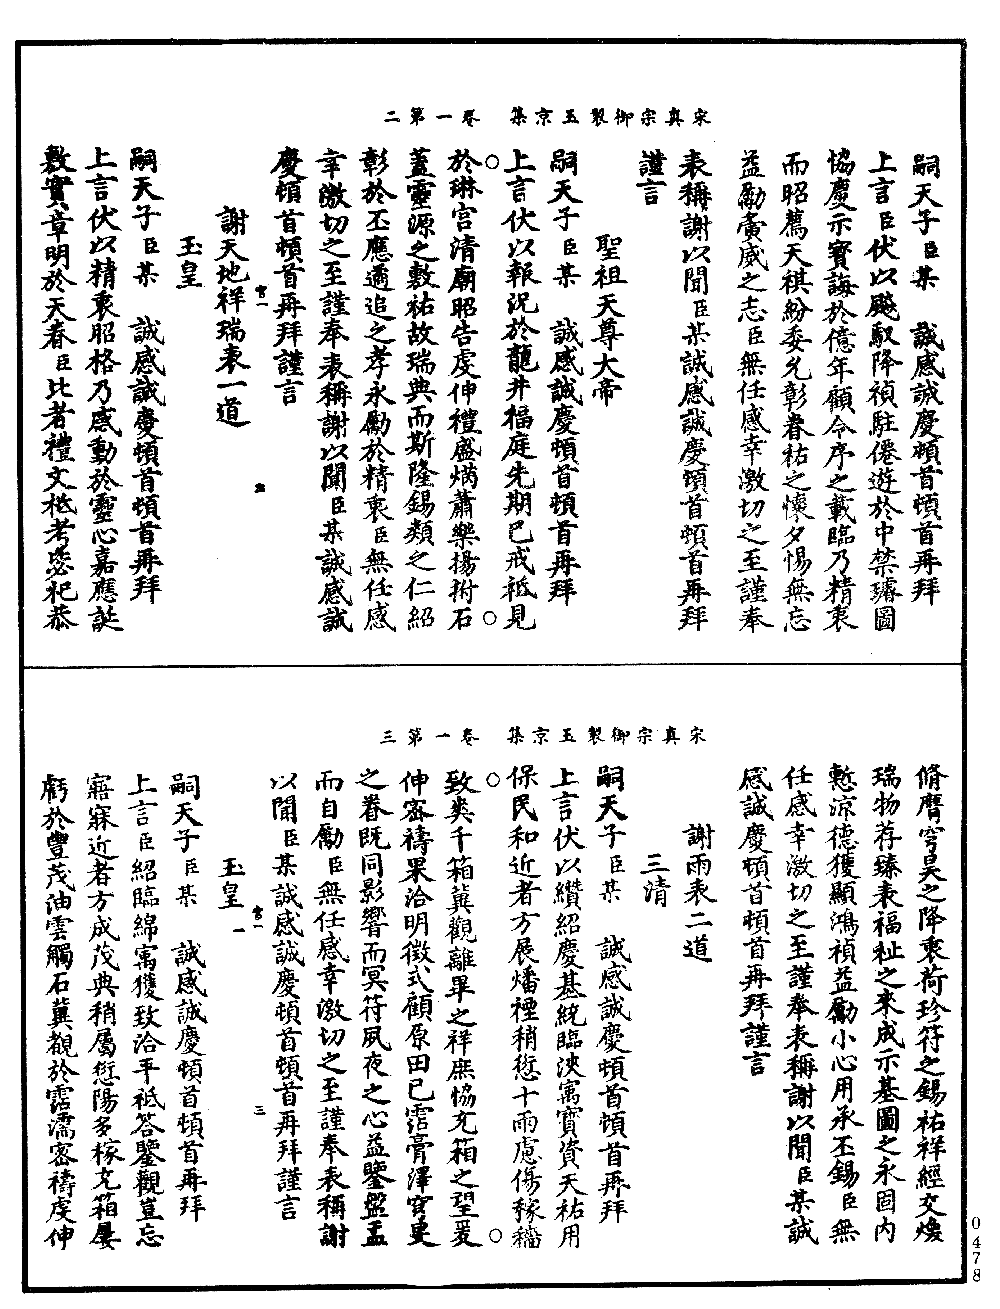 宋真宗御製玉京集　卷一第二
嗣天子臣某　誠感誠慶頓首頓首再拜
上言臣伏以飈馭降禎駐僊遊於中禁璿圖
協慶示寶誨於億年顧令序之載臨乃精衷
而昭薦天祺紛委允彰眷祐之懷夕惕無忘
益勵夤威之志臣無任感幸激切之至謹奉
表稱謝以聞臣某誠感誠慶頓首頓首再拜
謹言
聖祖天尊大帝
嗣天子臣某　誠感誠慶頓首頓首再拜
上言伏以報況於龍井福庭先期已戒祗見
於琳宮清廟昭告虔伸禮盛焫蕭樂揚拊石
蓋靈源之敷祐故瑞典而斯隆錫類之仁紹
彰於丕應遹追之孝永勵於精衷臣無任感
幸激切之至謹奉表稱謝以聞臣某誠感誠
慶頓首頓首再拜謹言
宮一
謝天地祥瑞表一道
玉皇
嗣天子臣某　誠感誠慶頓首頓首再拜
上言伏以精衷昭格乃感動於靈心嘉應誕
敷實章明於天眷臣比者禮文柢考毖祀恭
宋真宗御製玉京集　卷一第三
脩膺穹昊之降衷荷珍符之錫祐祥經交煥
瑞物荐臻表福祉之來成示基圖之永固内
慙涼德獲顯鴻禎益勵小心用承丕錫臣無
任感幸激切之至謹奉表稱謝以聞臣某誠
感誠慶頓首頓首再拜謹言
謝雨表二道
三清
嗣天子臣某　誠感誠慶頓首頓首再拜
上言伏以纘紹慶基統臨泱寓寶資天祐用
保民和近者方展燔禋稍愆十雨慮傷稼穡
致奕千箱冀觀離畢之祥庶協充箱之望爰
伸密禱果洽明徵式顧原田已霑膏澤寅畏
之眷既同影響而冥符夙夜之心益鑒盤盂
而自勵臣無任感幸激切之至謹奉表稱謝
以聞臣某誠感誠慶頓首頓首再拜謹言
宮一　三
玉皇
嗣天子臣某　誠感誠慶頓首頓首再拜
上言臣紹臨綿寓獲致洽平祗答鑒觀豈忘
寤寐近者方成茂典稍屬愆陽多稼充箱屢
虧於豐茂油雲觸石冀觀於霑濡密禱虔伸
0478